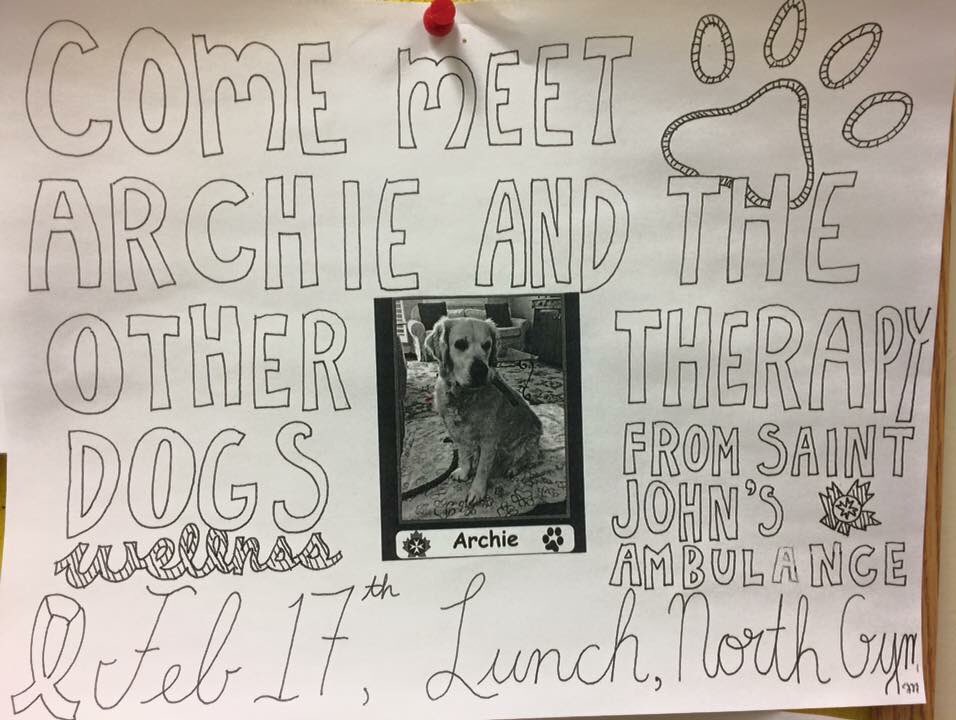 COME MEET
ARCHIE AND THE
OTHER THERAPY
DOGS
FROM SAINT
JOHN'S
AMBULANCE
wellness
Archie
Feb 17th, Lunch, North Gym